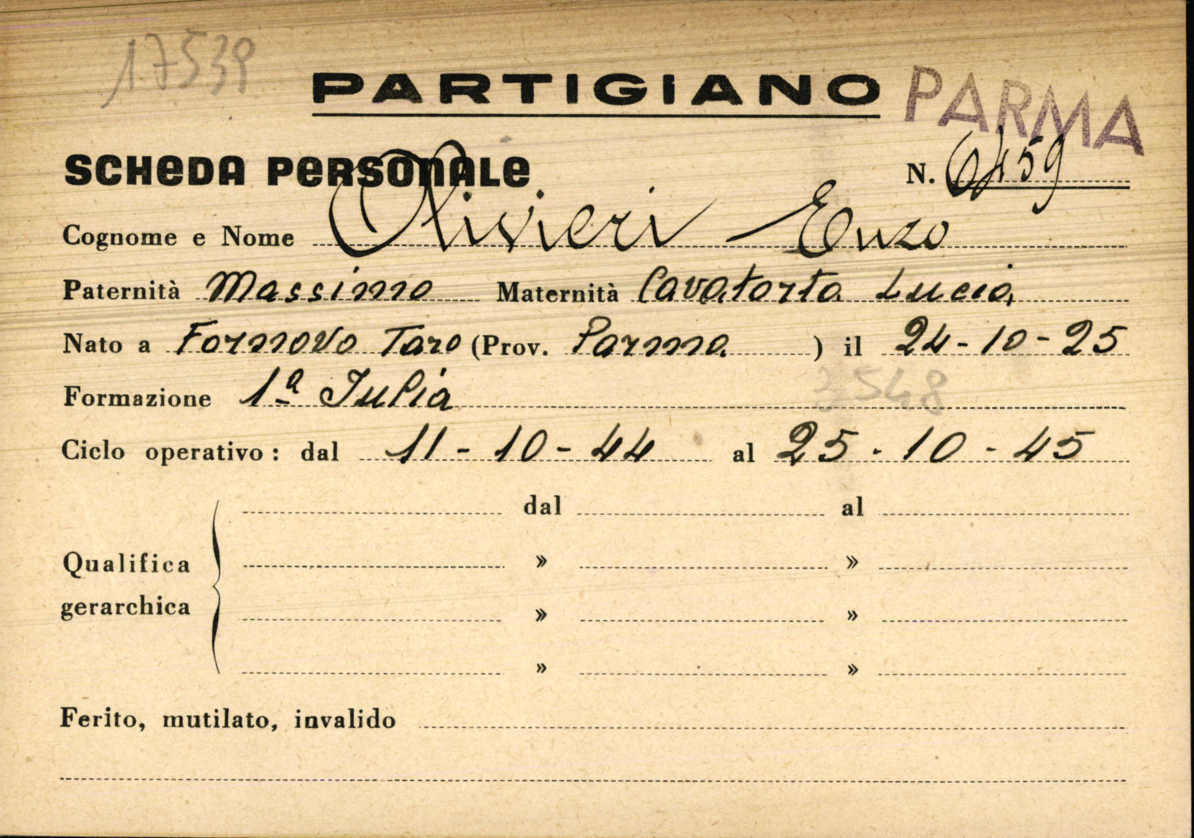 17539
PARTIGIANO PARMA
SCHEDA PERSONALE N. 6459
Cognome e Nome Olivieri - Enzo
Paternità Massimo Maternità Cavatorta Lucia
Nato a Fornovo Taro (Prov. Parma ) il 24-10-25
Formazione 1ª Julia 3548
Ciclo operativo: dal 11-10-44 al 25-10-45
dal al
Qualifica » »
gerarchica » »
» »
Ferito, mutilato, invalido